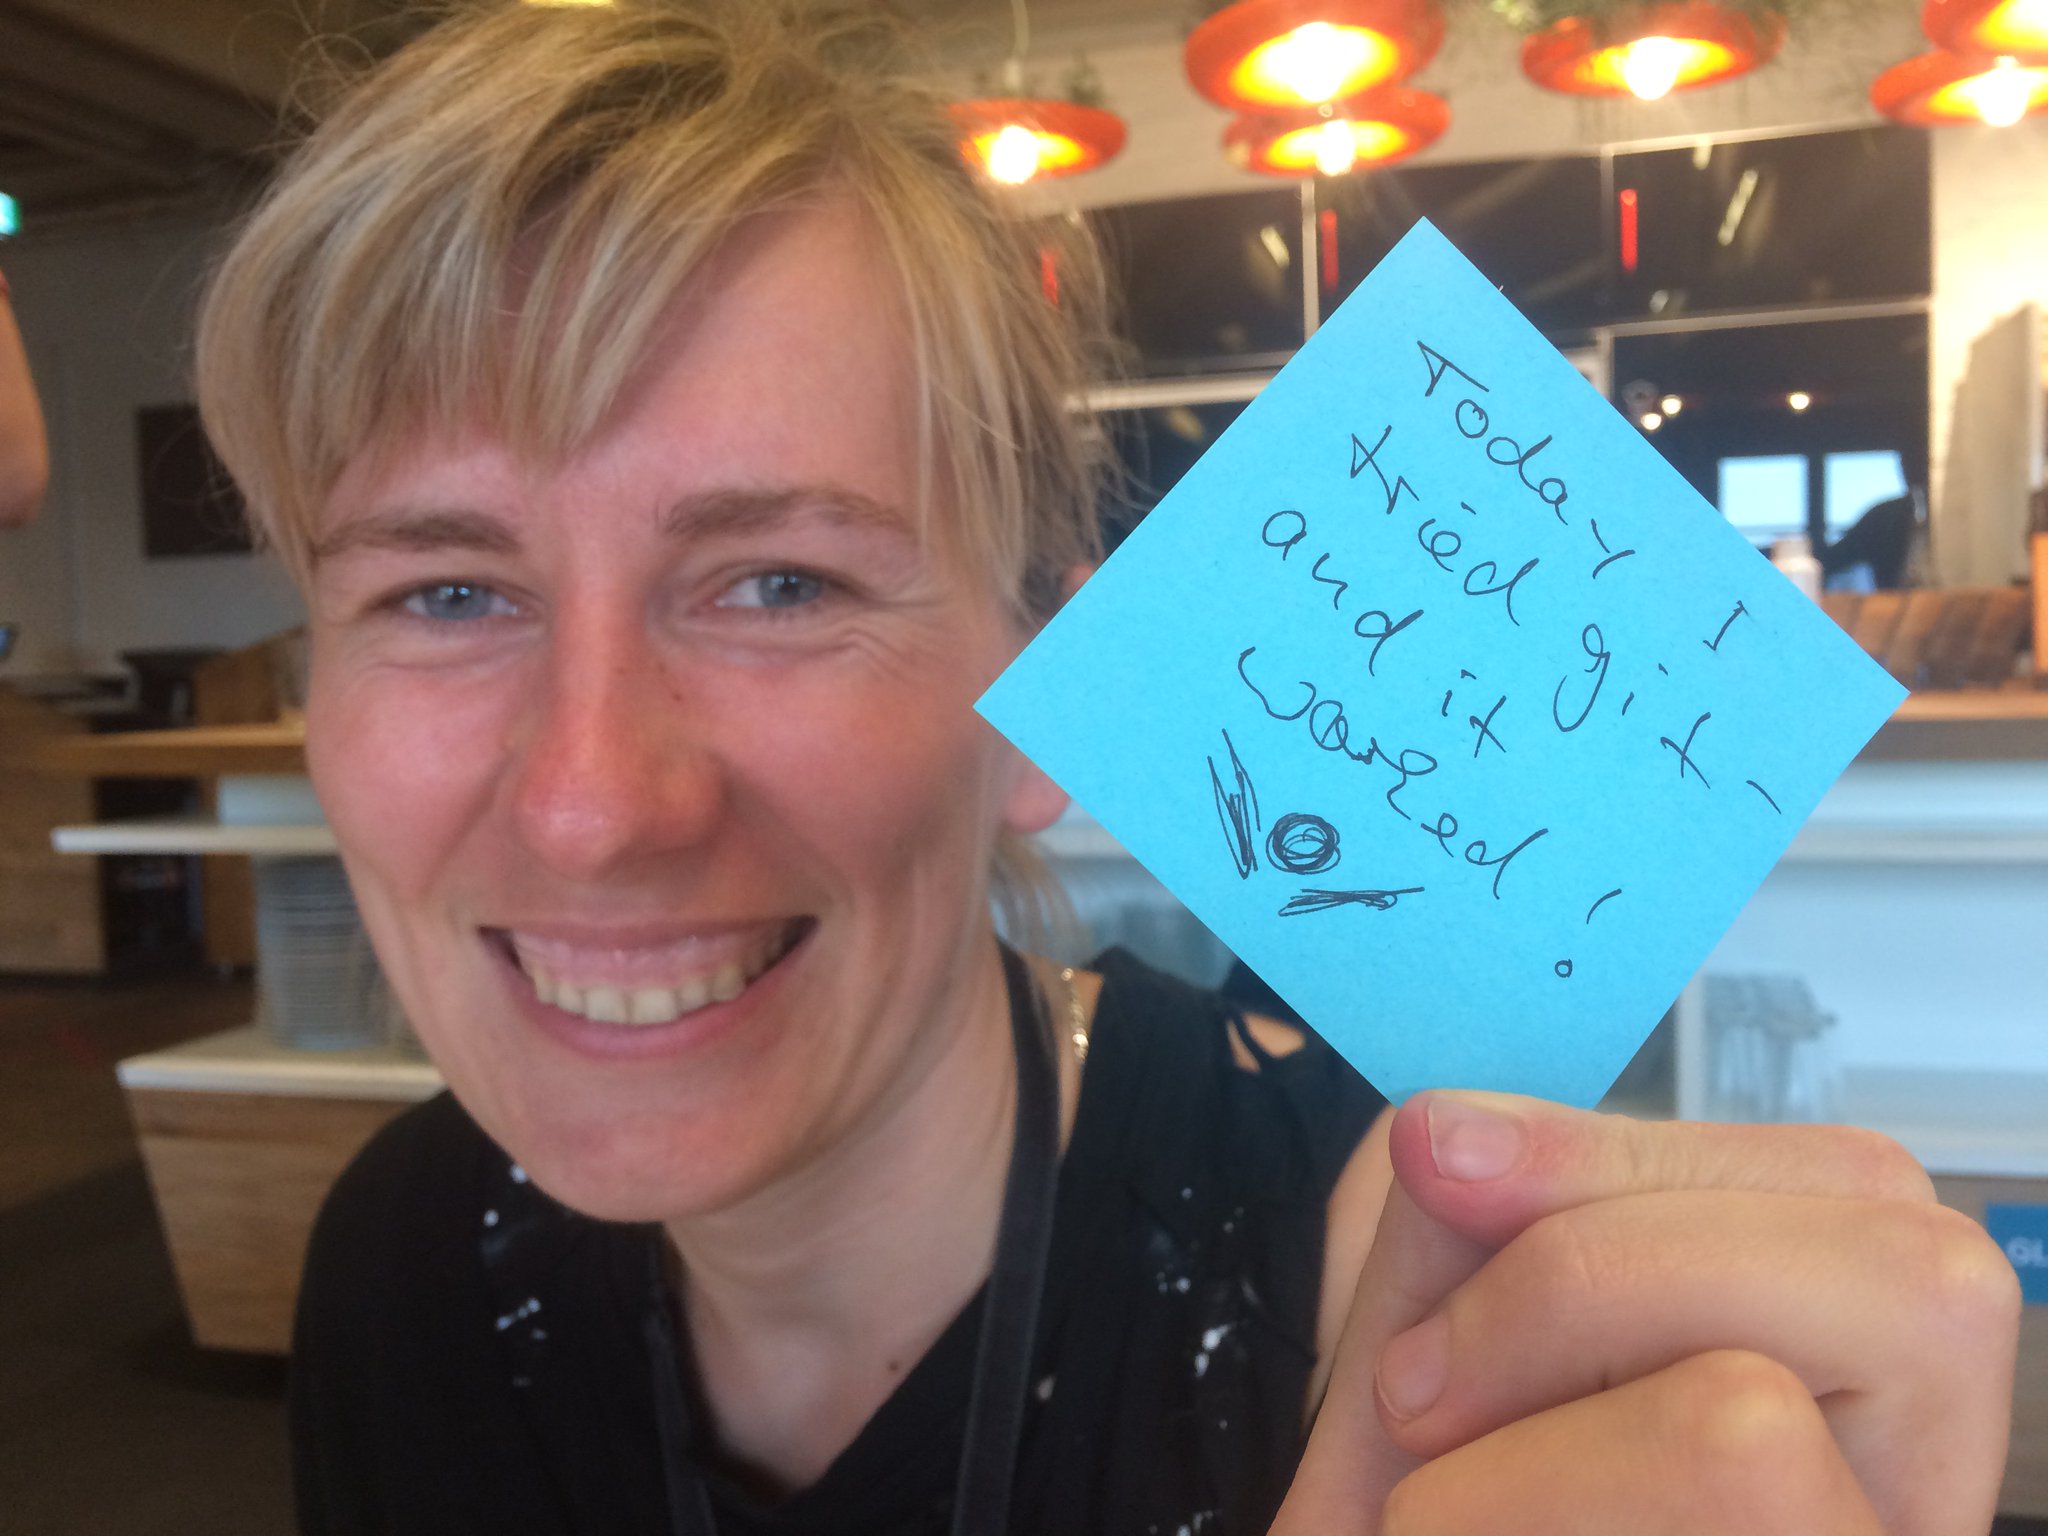 Today I
tried git -
and it
worked!
GL